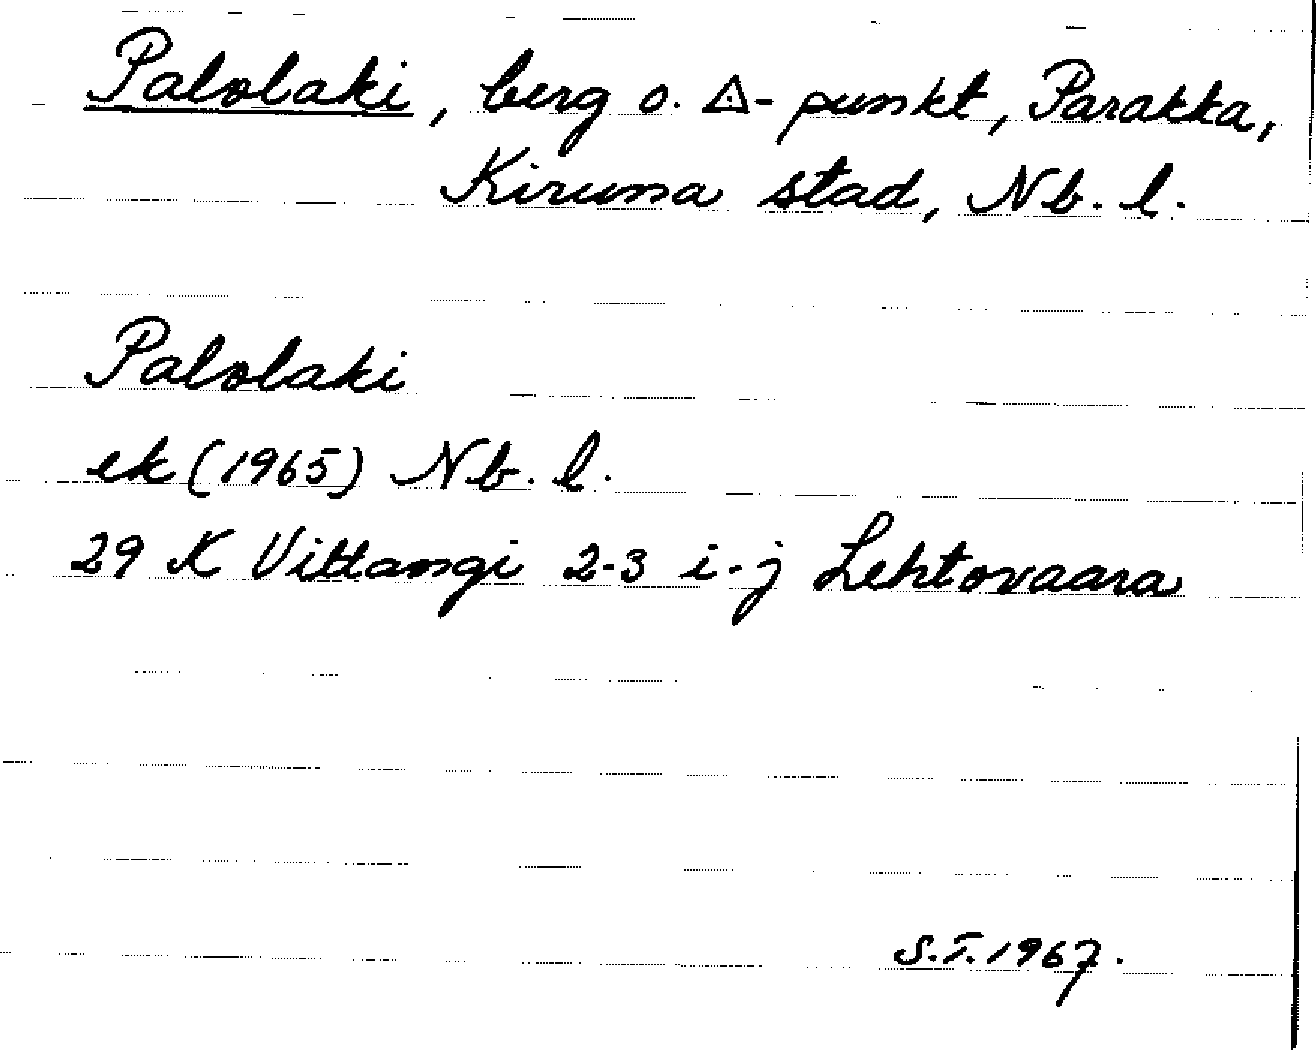 Palolaki, berg o. △-punkt, Parakka,
Kiruna stad, Nb. l.
Palolaki
ek (1965) Nb. l.
29 K Vittangi 2-3 i-j Lehtovaara
S.T. 1967.